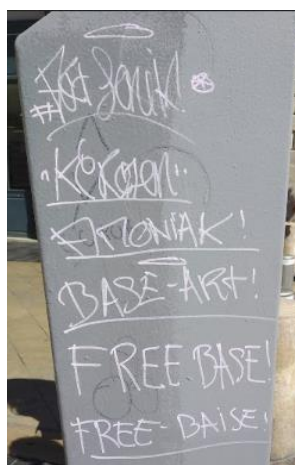 Korozon
AMONIAK!
BASE-ART!
FREE BASE!
FREE-BAISE!